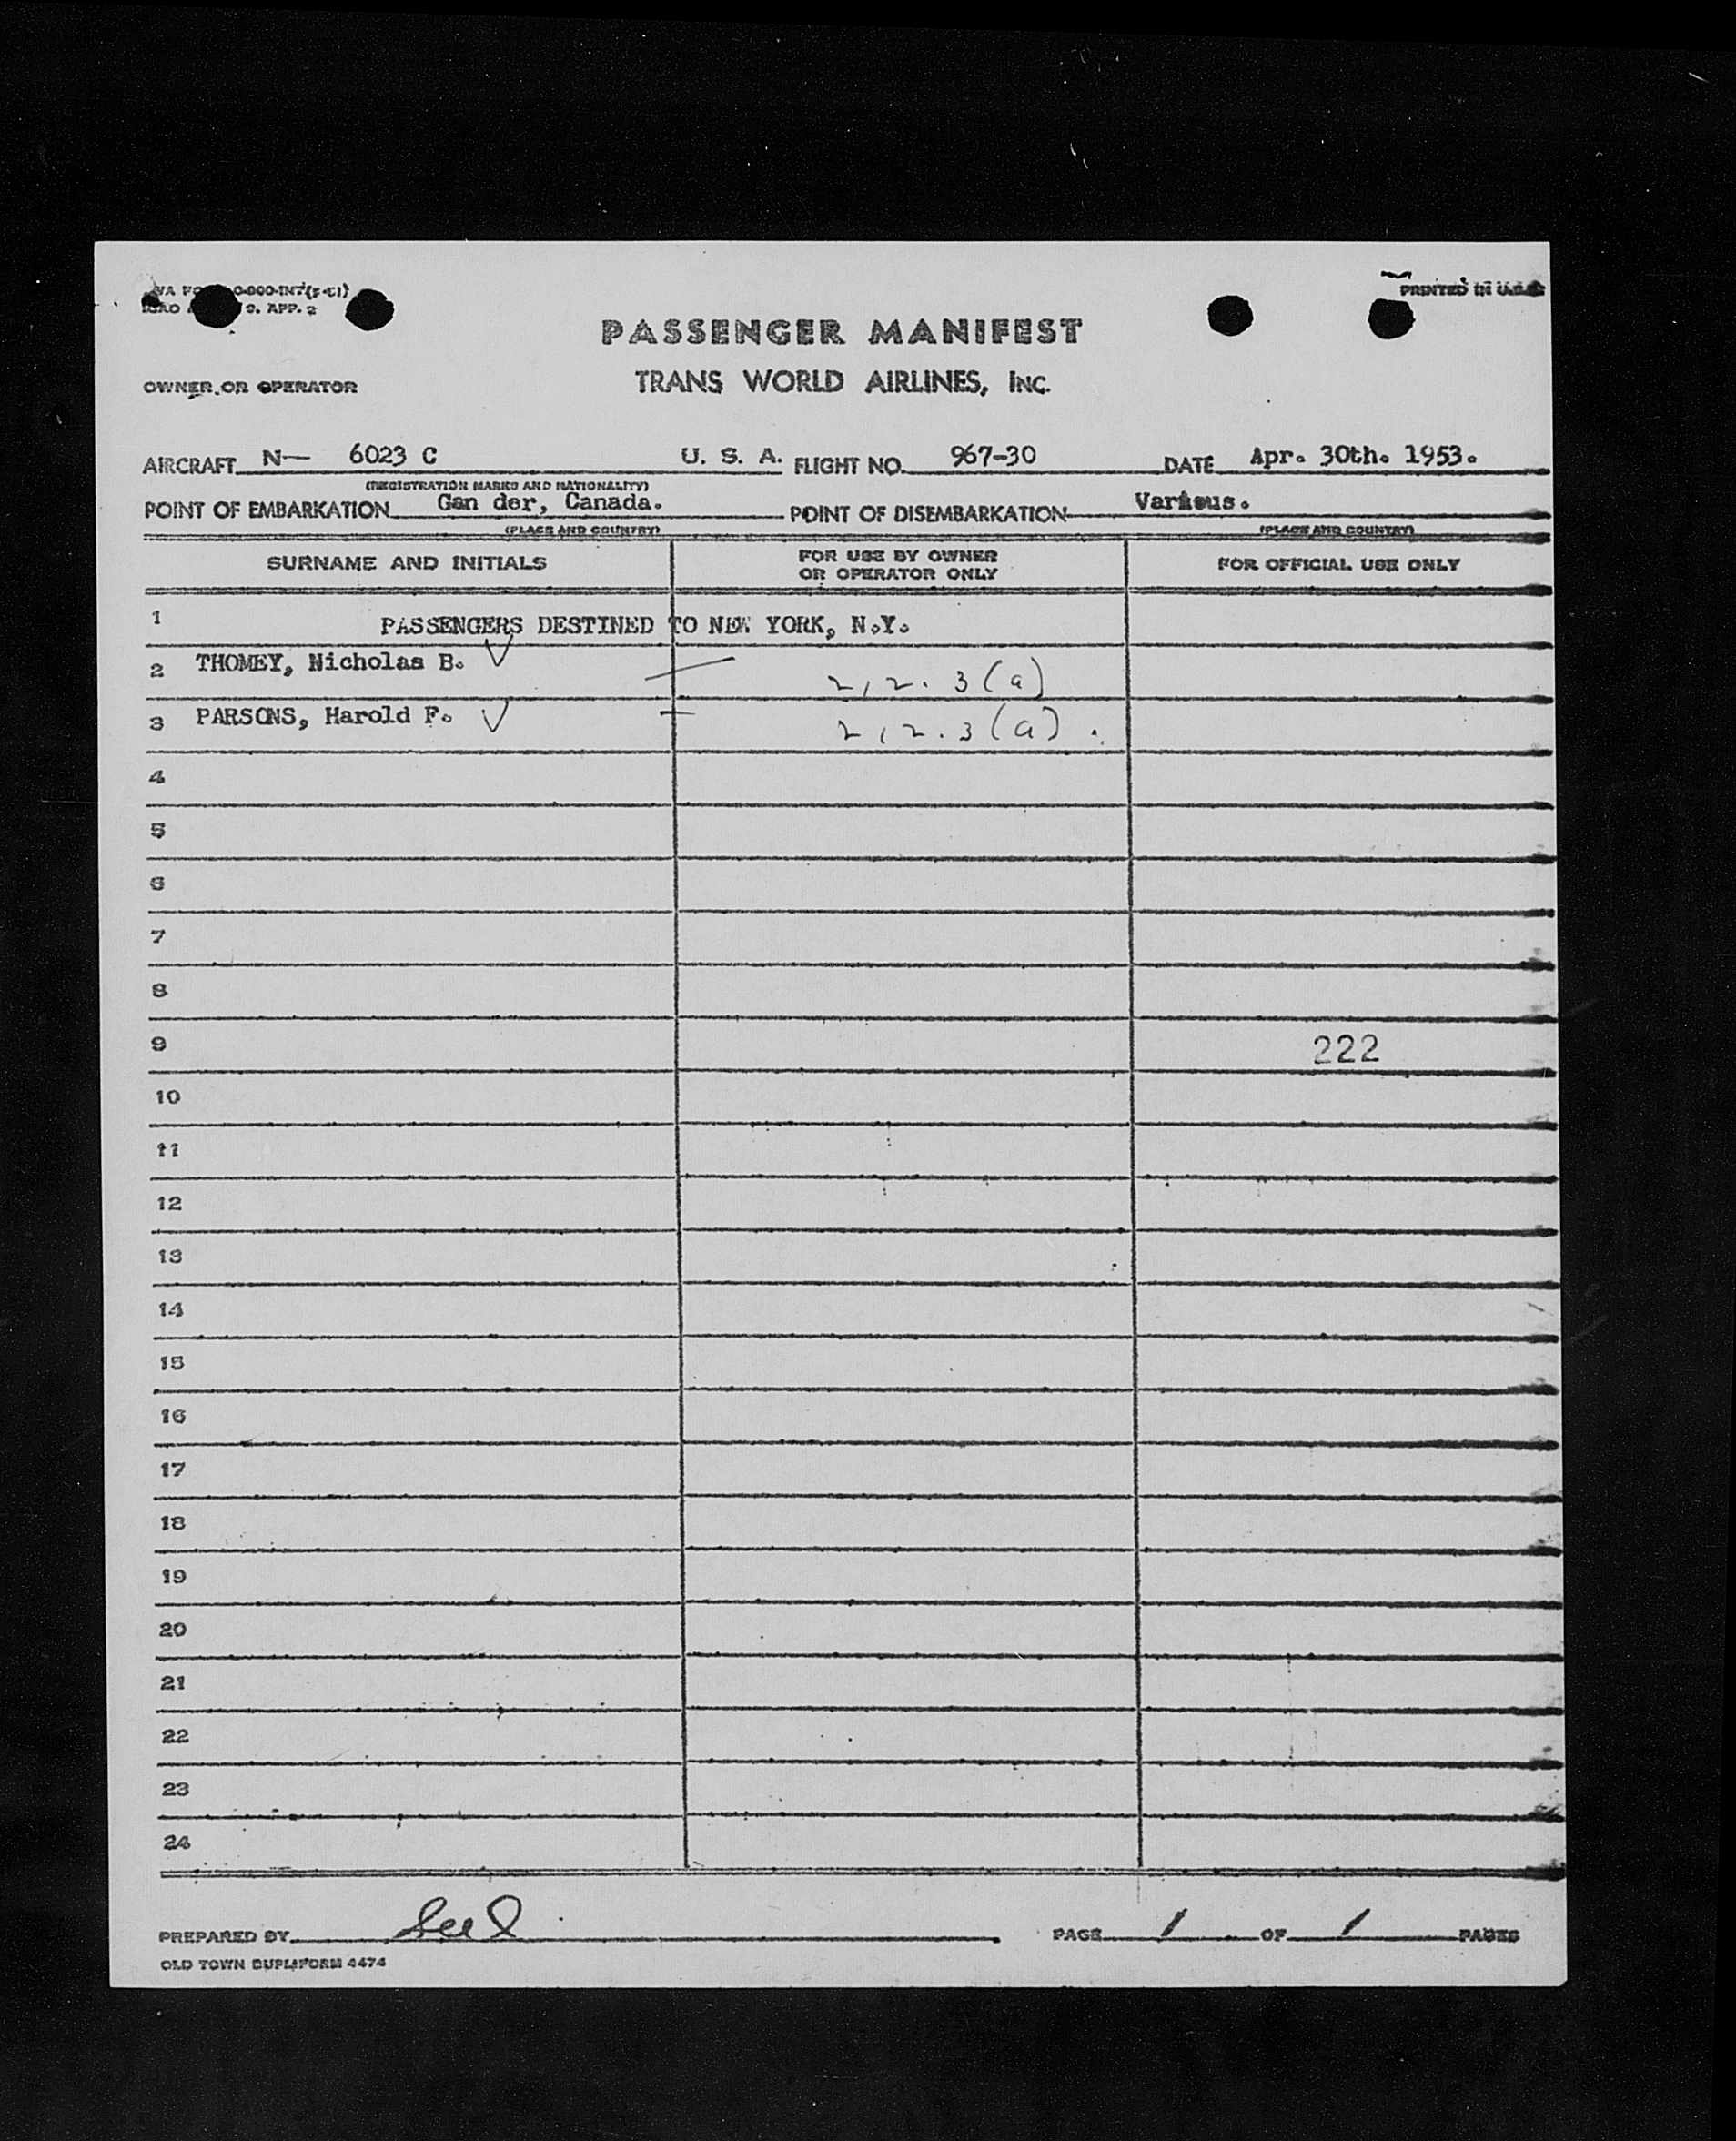 0-800-INT(5-51) PRINTED IN U.S.A.
ICAO 9. APP. 2
PASSENGER MANIFEST
OWNER OR OPERATOR TRANS WORLD AIRLINES, INC.
AIRCRAFT N— 6023 C U. S. A. FLIGHT NO. 967-30 DATE Apr. 30th. 1953.
(REGISTRATION MARKS AND NATIONALITY)
POINT OF EMBARKATION Gan der, Canada. POINT OF DISEMBARKATION Various.
(PLACE AND COUNTRY) (PLACE AND COUNTRY)
SURNAME AND INITIALS FOR USE BY OWNER OR OPERATOR ONLY FOR OFFICIAL USE ONLY
1 PASSENGERS DESTINED TO NEW YORK, N.Y.
2 THOMEY, Nicholas B. 212.3(a)
3 PARSONS, Harold F. 212.3(a).
4
5
6
7
8
9 222
10
11
12
13
14
15
16
17
18
19
20
21
22
23
24
PREPARED BY PAGE 1 OF 1 PAGES
OLD TOWN DUPLIFORM 4474